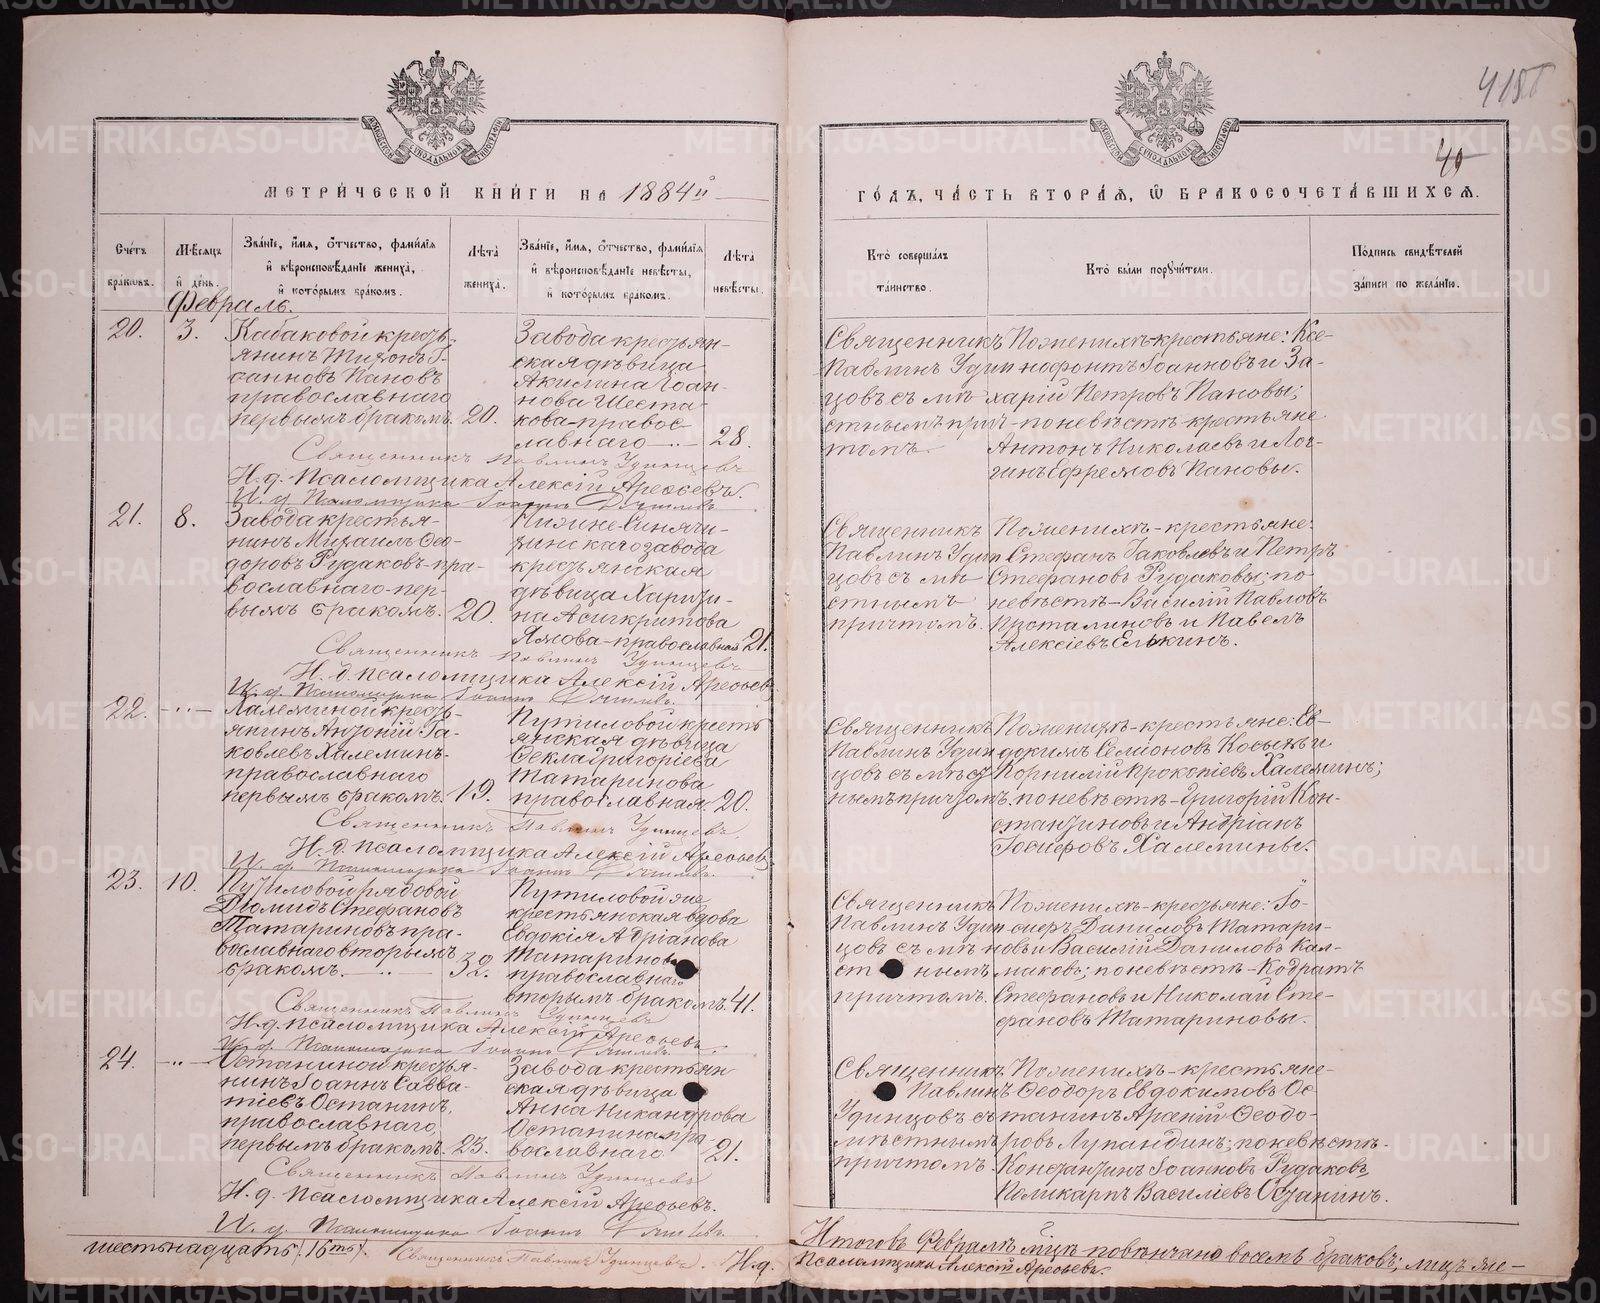 418б
40
МЕТРИ́ЧЕСКОЙ КНИ́ГИ НА 1884й
ГО́ДЪ, ЧА́СТЬ ВТОРА́Я, Ѡ БРАКОСОЧЕТА́ВШИХСЯ.
Счетъ бракѡвъ.
Мѣсяцъ и день.
Званіе, имя, отчество, фамилія и вѣроисповѣданіе жениха, и которымъ бракомъ.
Лѣта жениха.
Званіе, имя, отчество, фамилія и вѣроисповѣданіе невѣсты, и которымъ бракомъ.
Лѣта невѣсты.
Кто совершалъ таинство.
Кто были поручители.
Подпись свидѣтелей записи по желанію.
Февраль.
20.
3.
Кабаковой кресть-
янинъ Тихонъ І-
оанновъ Пановъ
православнаго
первымъ бракомъ.
20.
Завода крестьян-
ская дѣвица
Акилина Іоан-
нова Шеста-
кова православнаго
28.
Священникъ
Павлинъ Удин-
цовъ съ мѣ-
стнымъ прич-
томъ.
По женихѣ-крестьяне: Ксе-
нофонтъ Іоанновъ и За-
харій Петровъ Пановы;
по невѣстѣ-крестьяне
Антонъ Николаевъ и Лог-
гинъ Ефремовъ Пановы.
Священникъ Павлинъ Удинцевъ
И. д. Псаломщика Алексій Арефьевъ.
И. д. Псаломщика Іоаннъ
21.
8.
Завода крестья-
нинъ Михаилъ Ѳео-
доровъ Рудаковъ-пра-
вославнаго-пер-
вымъ бракомъ.
20.
Нижне-Синячи-
хинскаго завода
крестьянская
дѣвица Харити-
на Асигкритова
Ямова-православная
21.
Священникъ
Павлинъ Удин-
цовъ съ мѣ-
стнымъ
причтомъ.
По женихѣ-крестьяне:
Стефанъ Іаковлевъ и Петръ
Стефановъ Рудаковы; по
невѣстѣ-Василій Павловъ
Просталиновъ и Павелъ
Алексіевъ Елькинъ.
Священникъ Павлинъ Удинцевъ
И. д. псаломщика Алексій Арефьевъ
И. д. Псаломщика Іоаннъ
22.
-"-
Халеминой кресть-
янинъ Антоній Іа-
ковлевъ Халеминъ-
православнаго
первымъ бракомъ.
19.
Путиловой кресть
янская дѣвица
Ѳекла Григоріева
Татаринова
православная.
20.
Священникъ
Павлинъ Удин-
цовъ съ мѣст-
нымъ причтомъ.
По женихѣ-крестьяне: Ев-
докимъ Семіоновъ Косыхъ и
Корнилій Прокопіевъ Халеминъ;
по невѣстѣ-Григорій Кон-
стантиновъ и Андріанъ
Іосифовъ Халемины.
Священникъ Павлинъ Удинцевъ.
И. д. псаломщика Алексій Арефьевъ
И. д. Псаломщика Іоаннъ
23.
10.
Путиловой рядовой
Діомидъ Стефановъ
Татариновъ пра-
вославнаго вторымъ
бракомъ.
32.
Путиловой же
крестьянская вдова
Евдокія Адріанова
Татаринова
православнаго
вторымъ бракомъ.
41.
Священникъ
Павлинъ Удин-
цовъ съ мѣ-
стнымъ
причтомъ.
По женихѣ-крестьяне: Іо-
сифъ Даниловъ Татари-
новъ и Василій Даниловъ Кал-
маковъ; по невѣстѣ-Кодратъ
Стефановъ и Николай Сте-
фановъ Татариновы.
Священникъ Павлинъ Удинцевъ
И. д. псаломщика Алексій Арефьевъ.
И. д. Псаломщика Іоаннъ
24.
-"-
Останиной крестья-
нинъ Іоаннъ Савва-
тіевъ Останинъ,
православнаго,
первымъ бракомъ.
23.
Завода крестьян
ская дѣвица
Анна Никандрова
Останина пра-
вославнаго
21.
Священникъ
Павлинъ
Удинцовъ съ
мѣстнымъ
причтомъ.
По женихѣ-крестьяне-
Ѳеодоръ Евдокимовъ Ос-
танинъ Арсеній Ѳеодо-
ровъ Лупандинъ; по невѣстѣ-
Константинъ Іоанновъ Рудаковъ,
Поликарпъ Василіевъ Останинъ.
Священникъ Павлинъ Удинцевъ
И. д. Псаломщика Алексій Арефьевъ.
И. д. Псаломщика Іоаннъ
Итого въ Февралѣ м͠цѣ повѣнчано восемь браковъ; лицъ же-
шестьнадцать (16ть). Священникъ Павлинъ Удинцевъ. И. д.
Псаломщика Алексій Арефьевъ.
METRIKI.GASO-URAL.RU